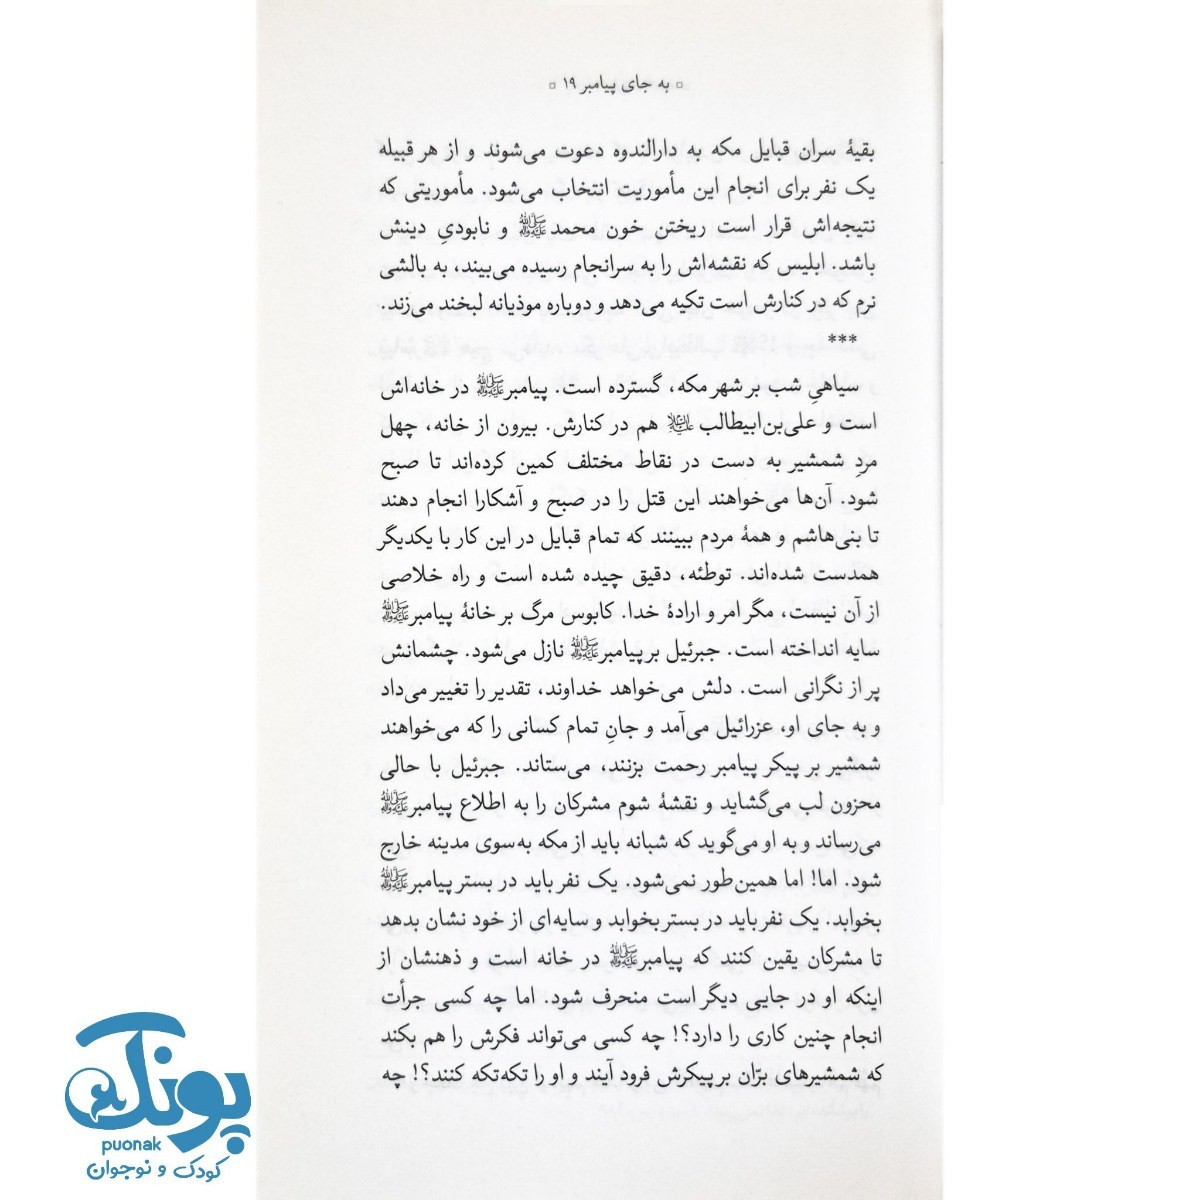 ▫ به جای پیامبر ۱۹ ▫
بقیهٔ سران قبایل مکه به دارالندوه دعوت می‌شوند و از هر قبیله
یک نفر برای انجام این مأموریت انتخاب می‌شود. مأموریتی که
نتیجه‌اش قرار است ریختن خون محمدﷺ و نابودیِ دینش
باشد. ابلیس که نقشه‌اش را به سرانجام رسیده می‌بیند، به بالشی
نرم که در کنارش است تکیه می‌دهد و دوباره موذیانه لبخند می‌زند.
***
سیاهیِ شب بر شهر مکه، گسترده است. پیامبرﷺ در خانه‌اش
است و علی‌بن‌ابیطالب علیه‌السلام هم در کنارش. بیرون از خانه، چهل
مردِ شمشیر به دست در نقاط مختلف کمین کرده‌اند تا صبح
شود. آن‌ها می‌خواهند این قتل را در صبح و آشکارا انجام دهند
تا بنی‌هاشم و همهٔ مردم ببینند که تمام قبایل در این کار با یکدیگر
همدست شده‌اند. توطئه، دقیق چیده شده است و راه خلاصی
از آن نیست، مگر امر و ارادهٔ خدا. کابوس مرگ بر خانهٔ پیامبرﷺ
سایه انداخته است. جبرئیل بر پیامبرﷺ نازل می‌شود. چشمانش
پر از نگرانی است. دلش می‌خواهد خداوند، تقدیر را تغییر می‌داد
و به جای او، عزرائیل می‌آمد و جانِ تمام کسانی را که می‌خواهند
شمشیر بر پیکر پیامبر رحمت بزنند، می‌ستاند. جبرئیل با حالی
محزون لب می‌گشاید و نقشهٔ شوم مشرکان را به اطلاع پیامبرﷺ
می‌رساند و به او می‌گوید که شبانه باید از مکه به‌سوی مدینه خارج
شود. اما! اما همین‌طور نمی‌شود. یک نفر باید در بستر پیامبرﷺ
بخوابد. یک نفر باید در بستر بخوابد و سایه‌ای از خود نشان بدهد
تا مشرکان یقین کنند که پیامبرﷺ در خانه است و ذهنشان از
اینکه او در جایی دیگر است منحرف شود. اما چه کسی جرأت
انجام چنین کاری را دارد؟! چه کسی می‌تواند فکرش را هم بکند
که شمشیرهای برّان بر پیکرش فرود آیند و او را تکه‌تکه کنند؟! چه
پونک
puonak
کودک و نوجوان